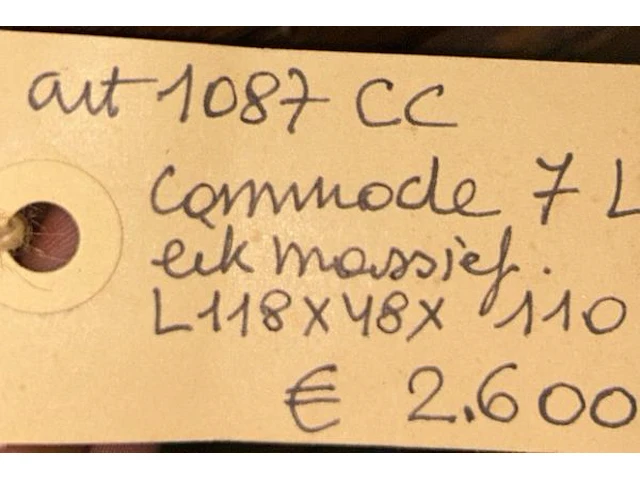 art 1087 CC
Commode 7 L
eik massief.
L118x48x 110
€ 2.600